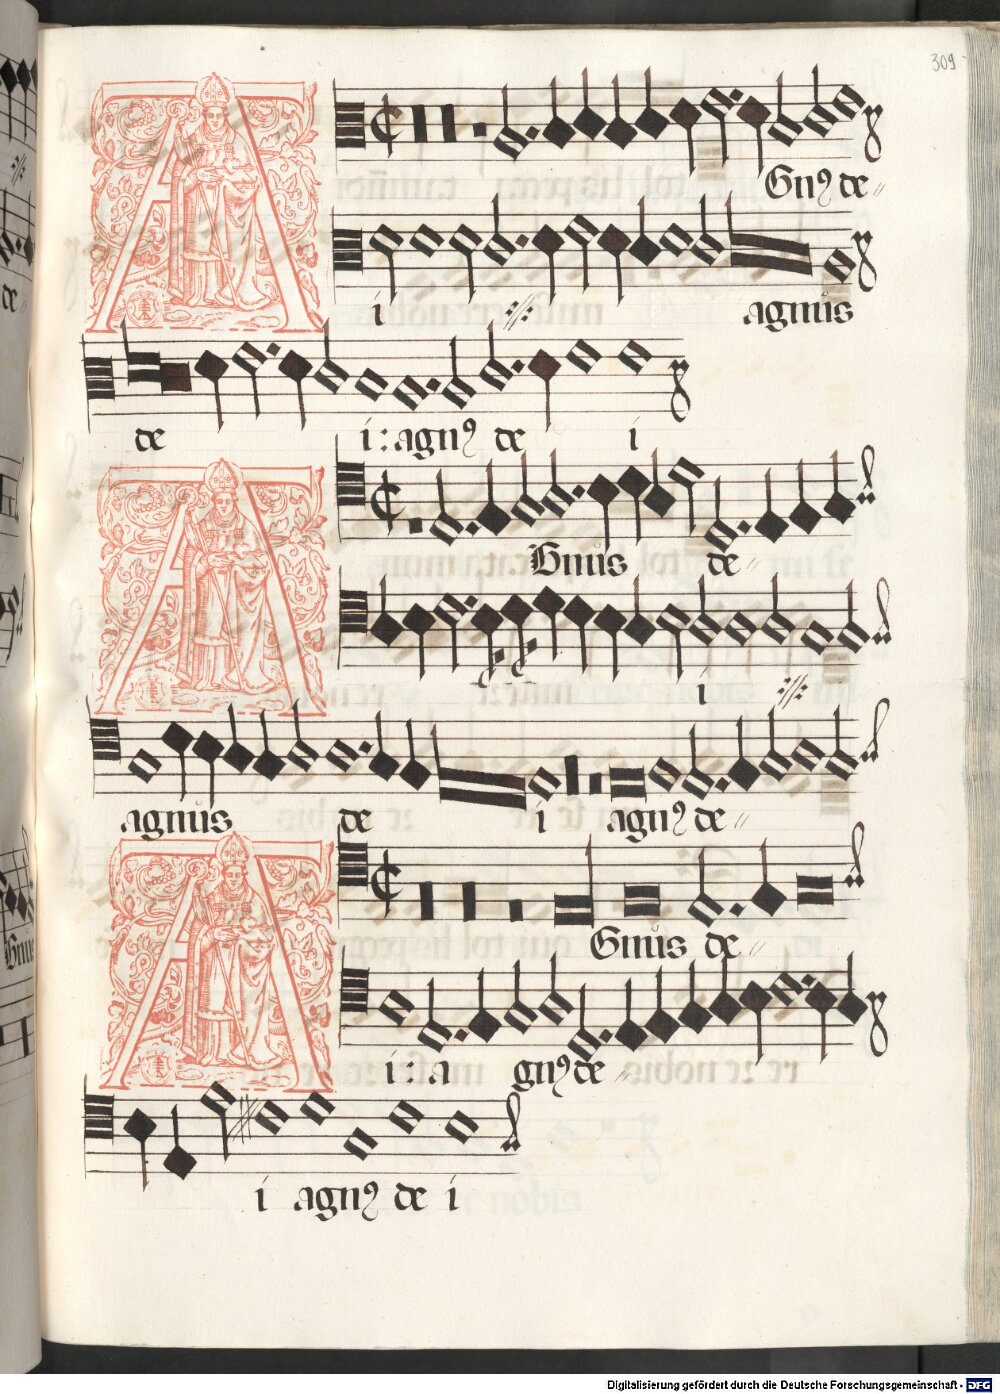 309
A Gnꝰ de
i agnus
de i : agnꝰ de i
A Gnus de
i
agnus de i agnꝰ de
A Gnus de
i : a gnꝰ de
i agnꝰ de i
Digitalisierung gefördert durch die Deutsche Forschungsgemeinschaft - DFG